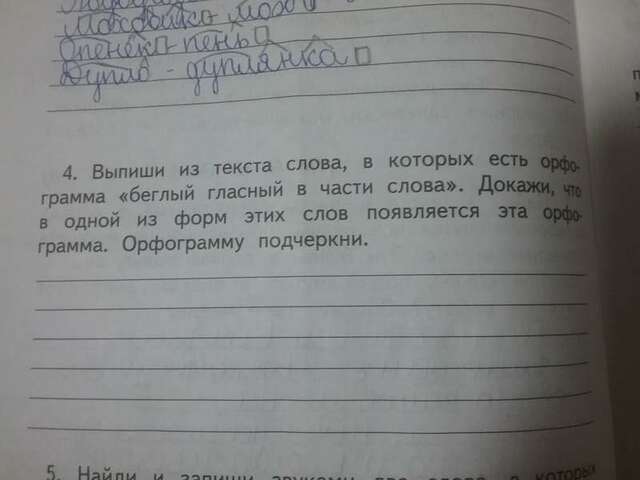 Моховика - мох
Опенёк - пень
Дупло - дуплянка
4. Выпиши из текста слова, в которых есть орфо-
грамма «беглый гласный в части слова». Докажи, что
в одной из форм этих слов появляется эта орфо-
грамма. Орфограмму подчеркни.
5. Найди и запиши звуками два слова, в которых